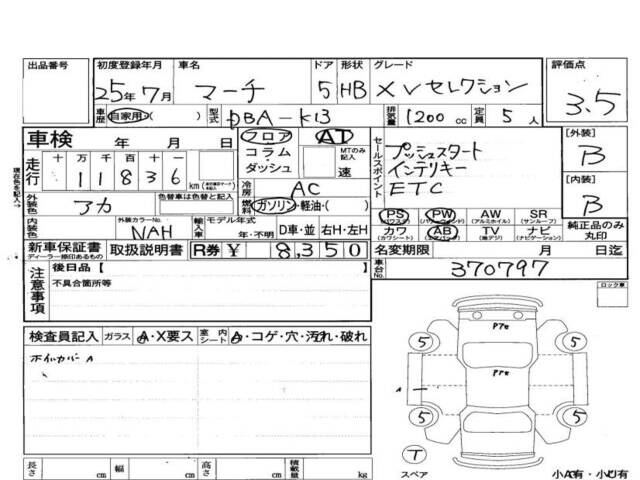 出品番号 初度登録年月 車名 ドア 形状 グレード 評価点
25年7月 マーチ 5 HB XVセレクション 3.5
車歴 自家用・( ) 型式 DBA-K13 排気量 1200cc 定員 5人
車検 年 月 日 フロア AT セールスポイント プッシュスタート [外装] B
現在色を記入→ 走行 十 万 千 百 十 一 コラム MTのみ記入 インテリキー
1 1 8 3 6 km ダッシュ 速 ETC [内装] B
冷房 AC
外装色 アカ 色替車は色替と記入 燃料 ガソリン・軽油・( )
PS PW AW SR
内装色 外装カラーNo. NAH 輸入車 モデル年式 年・不明 D車・並 右H・左H カワ AB TV ナビ 純正品のみ丸印
新車保証書 取扱説明書 R券 ¥ 8,350 名変期限 月 日迄
ディーラー捺印あるもの
注意事項 後日品【 車台No. 370797
不具合箇所等 ロック車
検査員記入 ガラス A・X要ス 室内シート A・コゲ・穴・汚れ・破れ
ホイルカバーA
Pフe
5 5
A Pre
5 5
T
スペア
長さ cm 幅 cm 高さ cm 積載量 kg 小A有・小U有